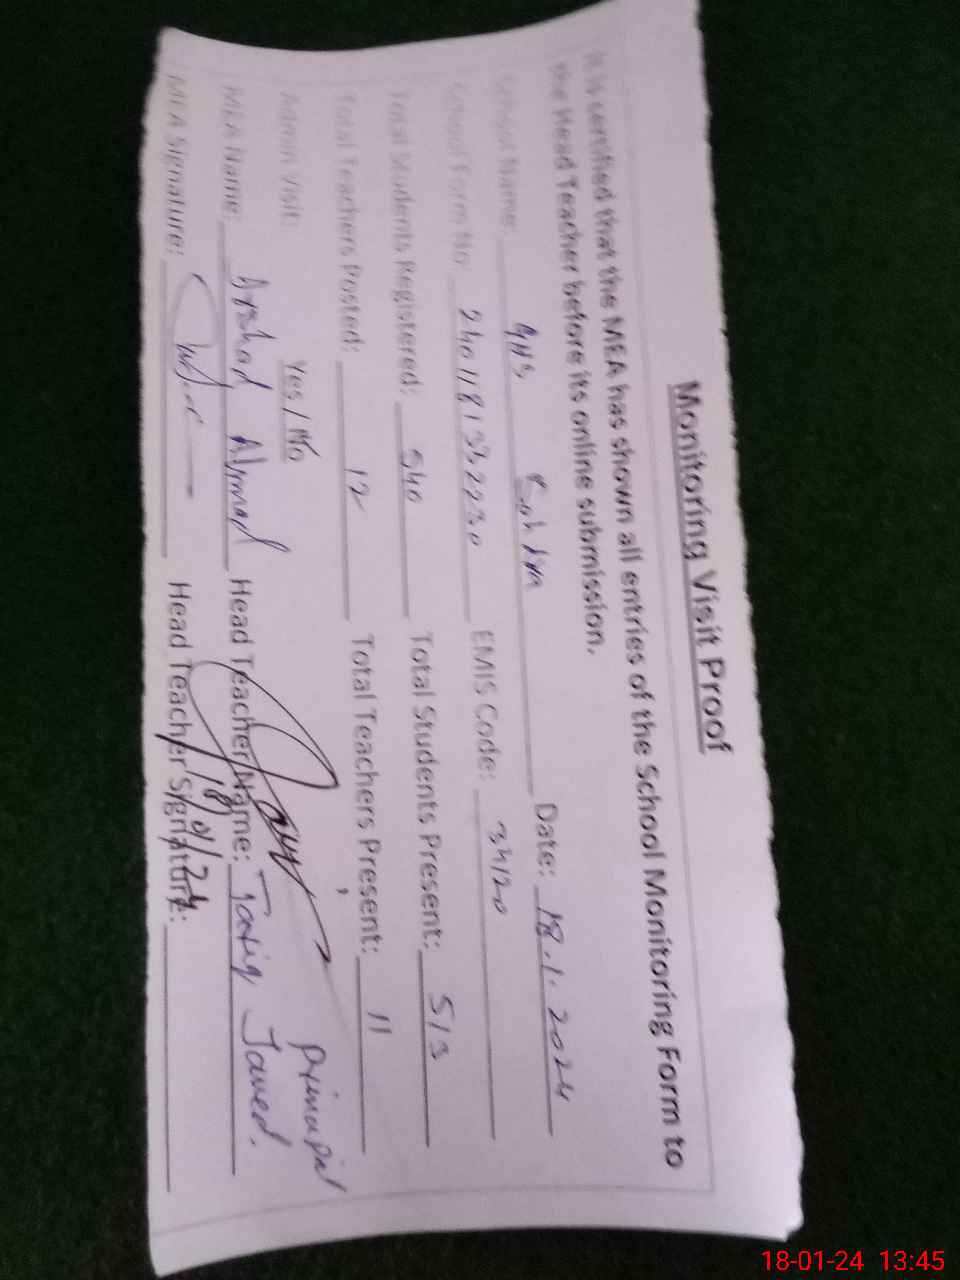 Monitoring Visit Proof
It is certified that the MEA has shown all entries of the School Monitoring Form to
the Head Teacher before its online submission.
School Name: GHS Date: 18.1.2024
School Form No: EMIS Code: 34120
Total Students Registered: 540 Total Students Present: 513
Total Teachers Posted: 12 Total Teachers Present: 11
Admin Visit: Yes / No
Principal
MEA Name: Arshad Ahmad Head Teacher Name: Tariq Javed.
MEA Signature: Head Teacher Signature:
18/01/24
18-01-24 13:45